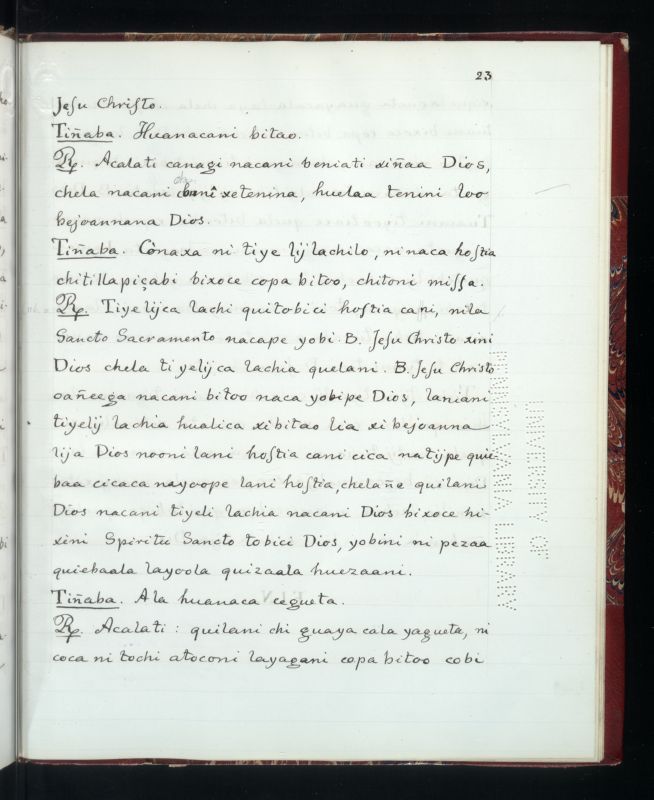 23
Jesu Christo.
Tiñaba. Huanacani bitao.
℞. Acalati canagi nacani beniati xiñaa Dios,
chela nacani xetenina, huelaa tenini loo
bejoannana Dios.
Tiñaba. Cònaxa ni tiye lij lachilo, ninaca hostia
chitillapiçabi bixoce copa bitoo, chitoni missa.
℞. Tiyelijca lachi quitobici hostia cani, nila
Sancto Sacramento nacape yobi. B. Jesu Christo xini
Dios chela tiyelijca lachia quelani. B. Jesu Christo
oañeega nacani bitoo naca yobipe Dios, laniani
tiyelij lachia hualica xibitao lia xi bejoanna
lija Dios nooni lani hostia cani cica natijpe quie-
baa cicaca nayoope lani hostia, chelañe quilani
Dios nacani tiyeli lachia nacani Dios bixoce hi-
xini Spiritu Sancto tobici Dios, yobini ni pezaa
quiebaala layoola quizaala huezaani.
Tiñaba. Ala huanaca cegueta.
℞. Acalati: quilani chi guaya cala yagueta, ni
coca ni tochi atoconi layagani copa bitoo cobi
UNIVERSITY OF
PENNSYLVANIA LIBRARY